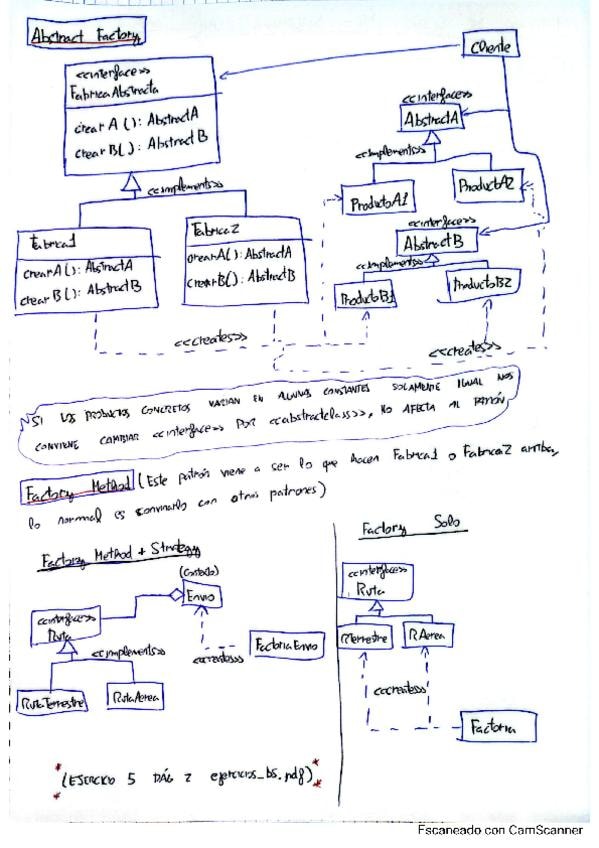 Abstract Factory
Cliente
<<interface>>
FabricaAbstracta
crearA(): AbstractA
crearB(): AbstractB
<<interface>>
AbstractA
<<implements>>
<<implements>>
ProductoA1
ProductoA2
Fabrica1
crearA(): AbstractA
crearB(): AbstractB
Fabrica2
crearA(): AbstractA
crearB(): AbstractB
<<interface>>
AbstractB
<<implements>>
ProductoB1
ProductoB2
<<creates>>
<<creates>>
SI LOS PRODUCTOS CONCRETOS VARIAN EN ALGUNOS CONSTANTES SOLAMENTE IGUAL NOS
CONVIENE CAMBIAR <<interface>> POR <<abstractclass>>, NO AFECTA AL PATRÓN
Factory Method (Este patrón viene a ser lo que hacen Fabrica1 o Fabrica2 arriba,
lo normal es convinarlo con otros patrones)
Factory Method + Strategy
(Contexto)
Envio
<<interface>>
Ruta
<<implements>>
RutaTerrestre
RutaAerea
<<creates>>
FactoriaEnvio
Factory Solo
<<interface>>
Ruta
RTerrestre
RAerea
<<creates>>
Factoria
*(EJERCICIO 5 PÁG 2 ejercicios_bs.pdf)*
Escaneado con CamScanner